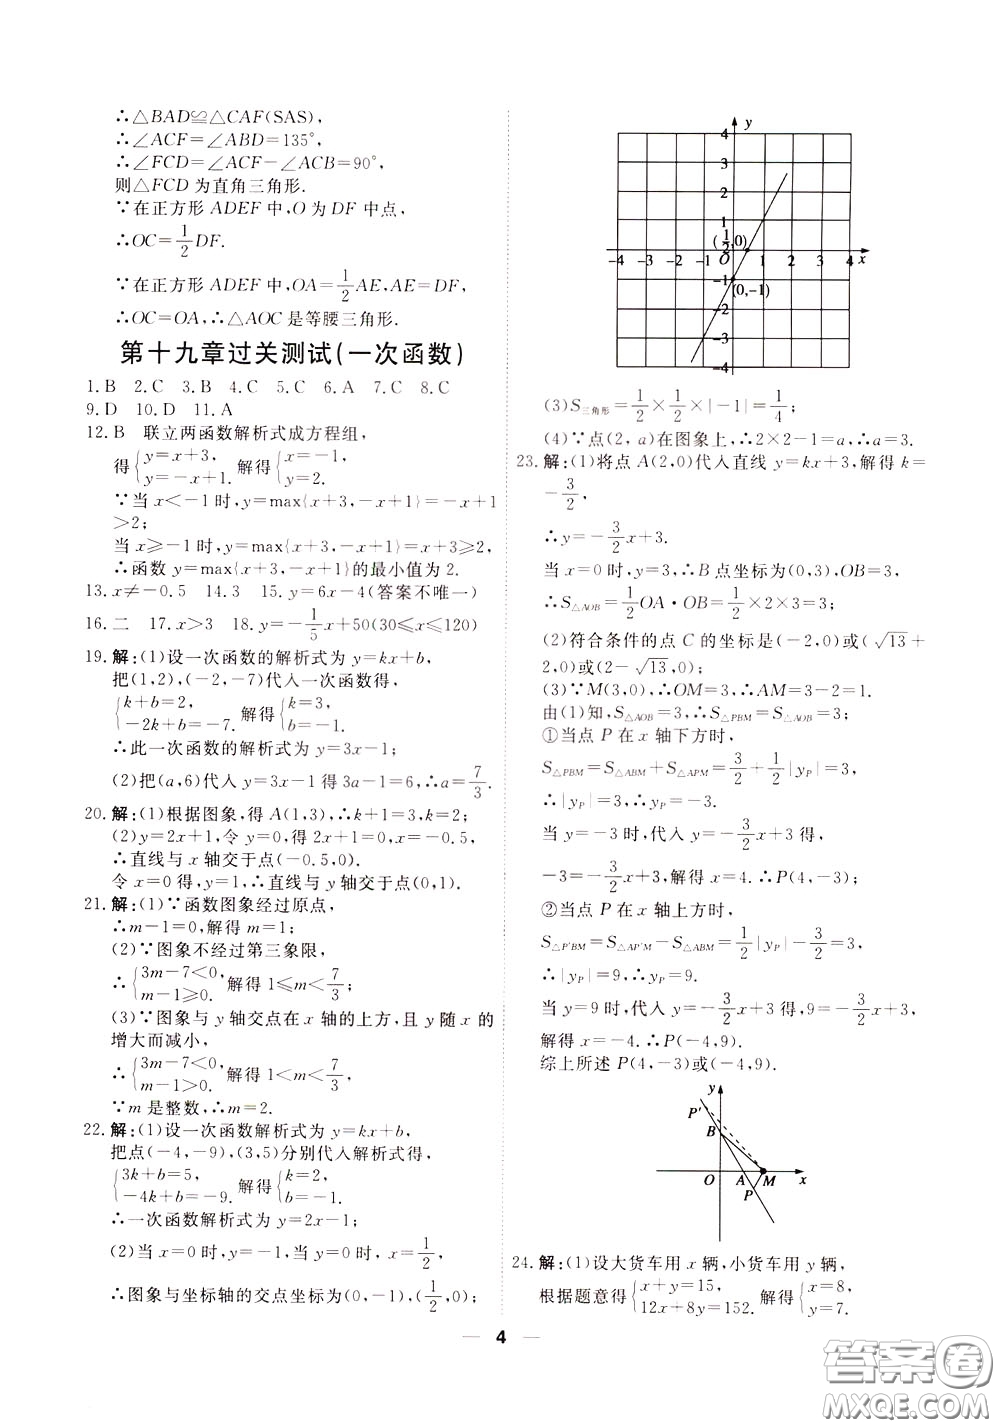 ∴△BAD≌△CAF(SAS),
∴∠ACF=∠ABD=135°,
∴∠FCD=∠ACF-∠ACB=90°,
则△FCD 为直角三角形.
∵在正方形 ADEF 中,O 为 DF 中点,
∴OC=1/2 DF.
∵在正方形 ADEF 中,OA=1/2 AE,AE=DF,
∴OC=OA,∴△AOC 是等腰三角形.
第十九章过关测试(一次函数)
1.B 2.C 3.B 4.C 5.C 6.A 7.C 8.C
9.D 10.D 11.A
12.B 联立两函数解析式成方程组,
得{y=x+3, y=-x+1. 解得{x=-1, y=2.
∵当 x<-1 时,y=max{x+3,-x+1}=-x+1
>2;
当 x≥-1 时,y=max{x+3,-x+1}=x+3≥2,
∴函数 y=max{x+3,-x+1}的最小值为 2.
13.x≠-0.5 14.3 15.y=6x-4(答案不唯一)
16.二 17.x>3 18.y=-1/5 x+50(30≤x≤120)
19.解:(1)设一次函数的解析式为 y=kx+b,
把(1,2),(-2,-7)代入一次函数得,
{k+b=2, -2k+b=-7. 解得{k=3, b=-1.
∴此一次函数的解析式为 y=3x-1;
(2)把(a,6)代入 y=3x-1得 3a-1=6,∴a=7/3.
20.解:(1)根据图象,得 A(1,3),∴k+1=3,k=2;
(2)y=2x+1,令 y=0,得 2x+1=0,x=-0.5,
∴直线与 x 轴交于点(-0.5,0).
令 x=0 得,y=1,∴直线与 y轴交于点(0,1).
21.解:(1)∵函数图象经过原点,
∴m-1=0,解得 m=1;
(2)∵图象不经过第三象限,
∴{3m-7<0, m-1≥0. 解得 1≤m<7/3;
(3)∵图象与 y 轴交点在 x 轴的上方,且 y 随 x 的
增大而减小,
∴{3m-7<0, m-1>0. 解得 1<m<7/3,
∵m 是整数,∴m=2.
22.解:(1)设一次函数解析式为 y=kx+b,
把点(-4,-9),(3,5)分别代入解析式得,
{3k+b=5, -4k+b=-9. 解得{k=2, b=-1.
∴一次函数解析式为 y=2x-1;
(2)当 x=0 时,y=-1,当 y=0 时,x=1/2,
∴图象与坐标轴的交点坐标为(0,-1),(1/2,0);
y
4
3
2
1
(1/2,0)
-4 -3 -2 -1 O 1 2 3 4 x
-1
(0,-1)
-2
-3
-4
(3)S三角形=1/2×1/2×|-1|=1/4;
(4)∵点(2,a)在图象上,∴2×2-1=a,∴a=3.
23.解:(1)将点 A(2,0)代入直线 y=kx+3,解得 k=
-3/2,
∴y=-3/2 x+3.
当 x=0 时,y=3,∴B 点坐标为(0,3),OB=3,
∴S△AOB=1/2 OA·OB=1/2×2×3=3;
(2)符合条件的点 C 的坐标是(-2,0)或(√13+
2,0)或(2-√13,0);
(3)∵M(3,0),∴OM=3,∴AM=3-2=1.
由(1)知,S△AOB=3,∴S△PBM=S△AOB=3;
①当点 P 在 x 轴下方时,
S△PBM=S△ABM+S△APM=3/2+1/2|yP|=3,
∴|yP|=3,∴yP=-3.
当 y=-3时,代入 y=-3/2 x+3得,
-3=-3/2 x+3,解得 x=4.∴P(4,-3);
②当点 P 在 x 轴上方时,
S△P'BM=S△AP'M-S△ABM=1/2|yP|-3/2=3,
∴|yP|=9,∴yP=9.
当 y=9 时,代入 y=-3/2 x+3 得,9=-3/2 x+3,
解得 x=-4.∴P(-4,9).
综上所述 P(4,-3)或(-4,9).
y
P'
B
O A M x
P
24.解:(1)设大货车用 x 辆,小货车用 y 辆,
根据题意得{x+y=15, 12x+8y=152. 解得{x=8, y=7.
4
答案圈
MXQE.COM